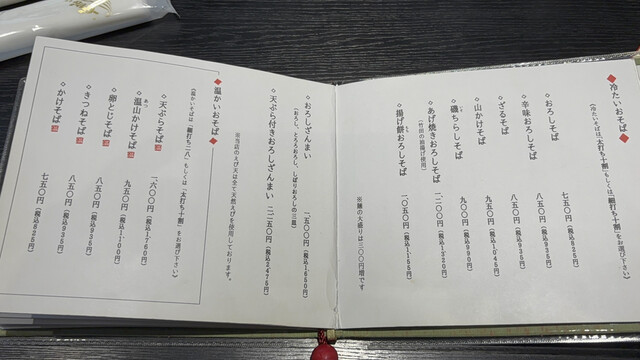 ◆冷たいおそば◆
(冷たいそばは「太打ち十割」もしくは「細打ち十割」をお選び下さい)
◇おろしそば 七五〇円(税込825円)
◇辛味おろしそば 八五〇円(税込935円)
◇ざるそば 八五〇円(税込935円)
◇山かけそば 九五〇円(税込1045円)
◇磯ちらしそば 九〇〇円(税込990円)
◇あげ焼きおろしそば 一二〇〇円(税込1320円)
(竹田の油揚げ使用)
◇揚げ餅おろしそば 一〇五〇円(税込1155円)
※麺の大盛りは三〇〇円増です
◇おろしざんまい 一五〇〇円(税込1650円)
(おろし、とろろおろし、しぼりおろしの三昧)
◇天ぷら付きおろしざんまい 二二五〇円(税込2475円)
※当店のえび天は全て天然えびを使用しております。
◆温かいおそば◆
(温かいそばは「細打ち二八」もしくは「太打ち十割」をお選び下さい)
◇天ぷらそば 一、六〇〇円(税込1760円)
◇温山かけそば 九五〇円(税込1100円)
◇卵とじそば 八五〇円(税込935円)
◇きつねそば 八五〇円(税込935円)
◇かけそば 七五〇円(税込825円)